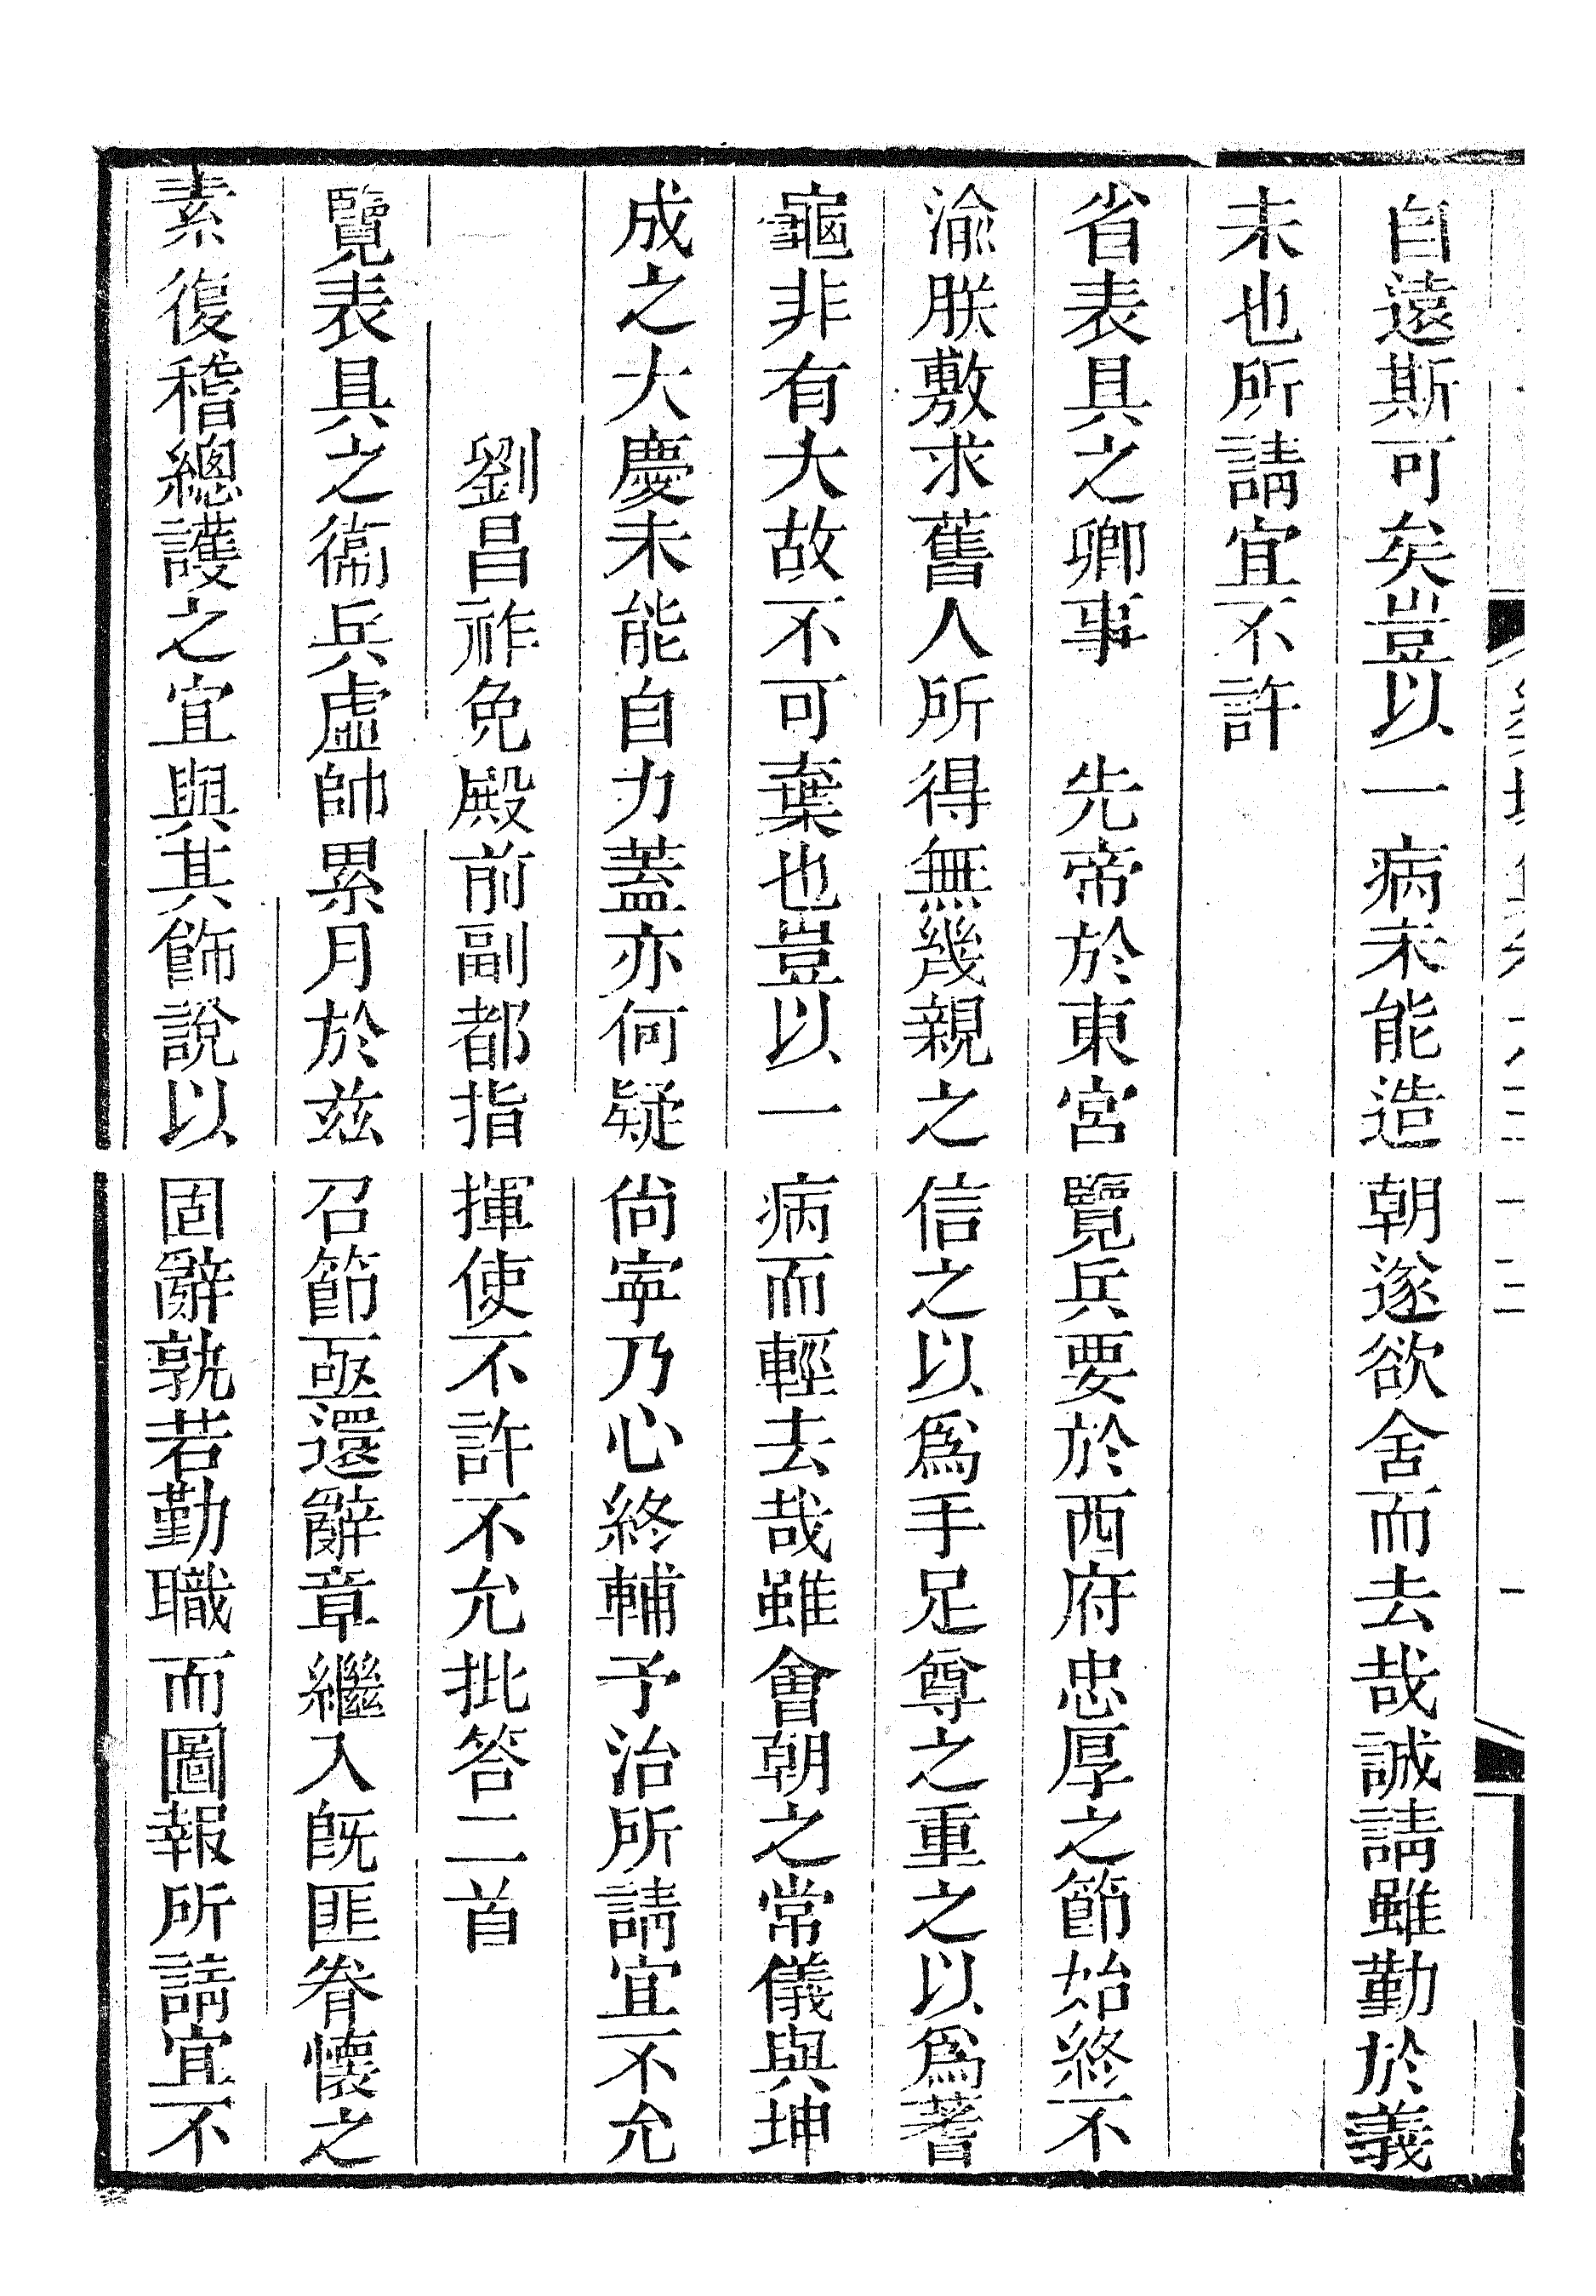 自遠斯可矣豈以一病未能造朝遂欲舍而去哉誠請雖勤於義
未也所請宜不許
省表具之卿事　先帝於東宮覽兵要於西府忠厚之節始終不
渝朕敷求舊人所得無幾親之信之以爲手足尊之重之以爲蓍
龜非有大故不可棄也豈以一病而輕去哉雖會朝之常儀與坤
成之大慶未能自力蓋亦何疑尙寧乃心終輔予治所請宜不允
劉昌祚免殿前副都指揮使不許不允批答二首
覽表具之衞兵虛帥累月於玆召節亟還辭章繼入旣匪眷懷之
素復稽總護之宜與其飾說以固辭孰若勤職而圖報所請宜不